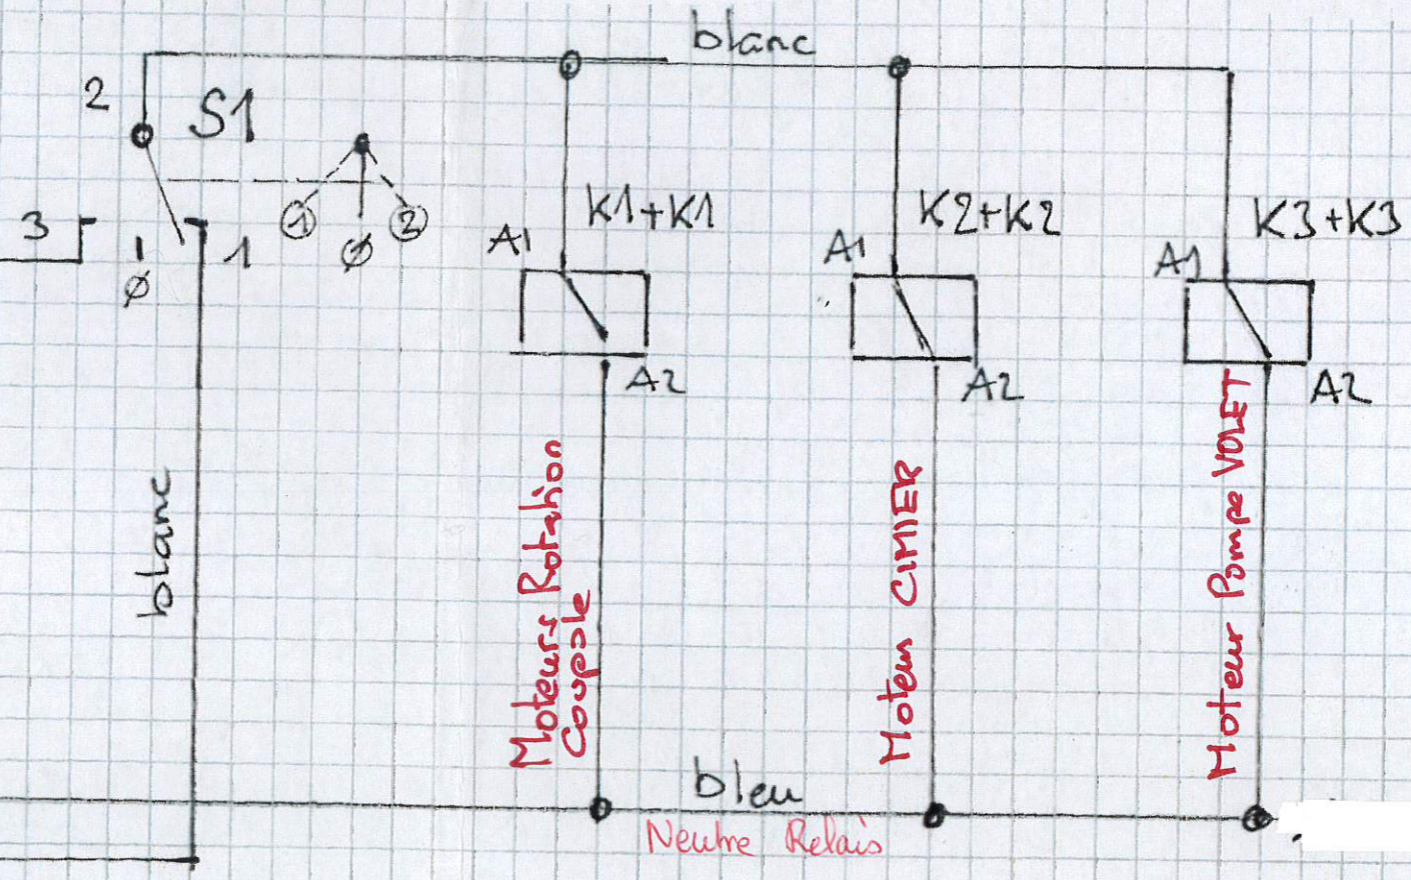 blanc
2
S1
3
Ø
1
1
Ø
2
A1
K1+K1
A2
A1
K2+K2
A2
A1
K3+K3
A2
blanc
Moteurs Rotation
Coupole
Moteur CIMIER
Moteur Pompe VOLET
bleu
Neutre Relais